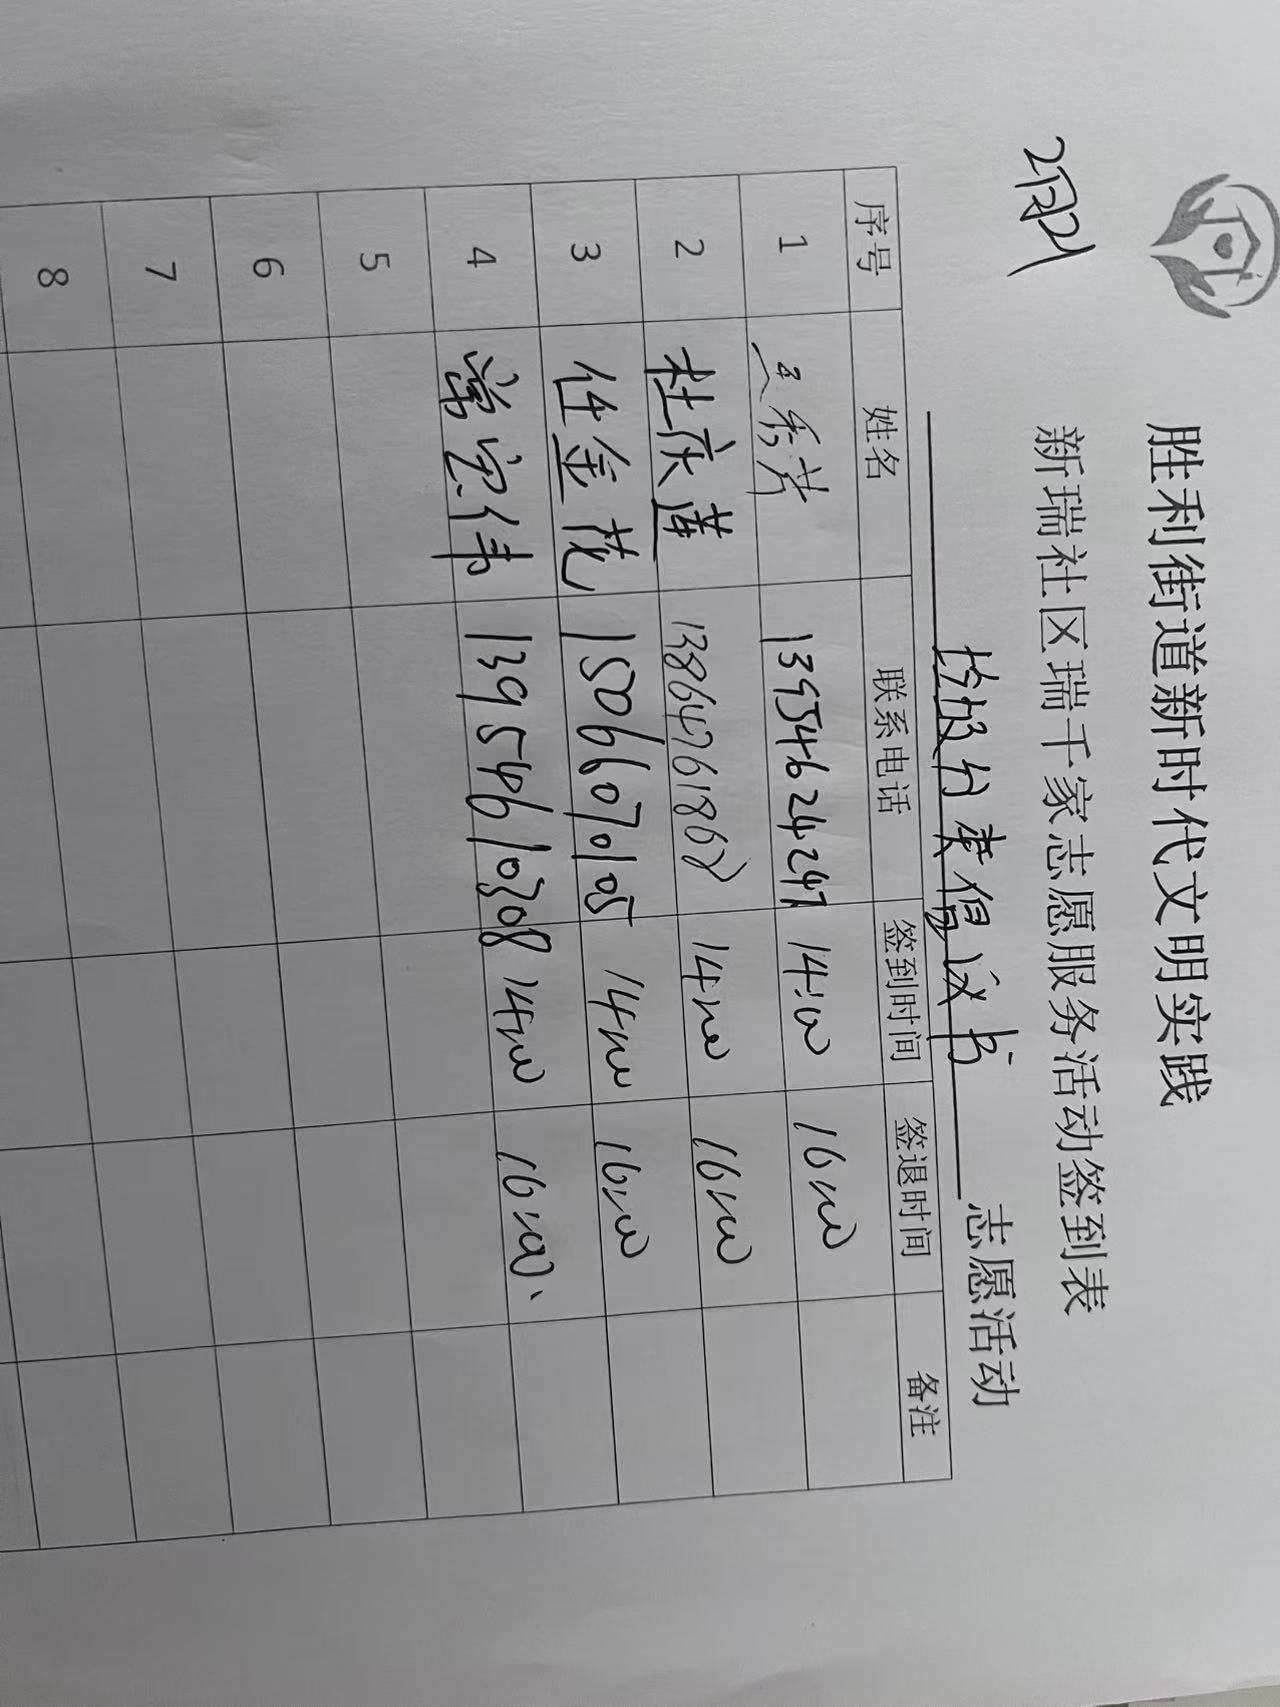 胜利街道新时代文明实践
新瑞社区瑞千家志愿服务活动签到表
垃圾分类倡议书 志愿活动
序号 姓名 联系电话 签到时间 签退时间 备注
1 王秀芳 13954624247 14:00 16:00
2 杜庆莲 13864761868 14:00 16:00
3 任金茂 15066070105 14:00 16:00
4 常宝伟 13954610308 14:00 16:00
5
6
7
8